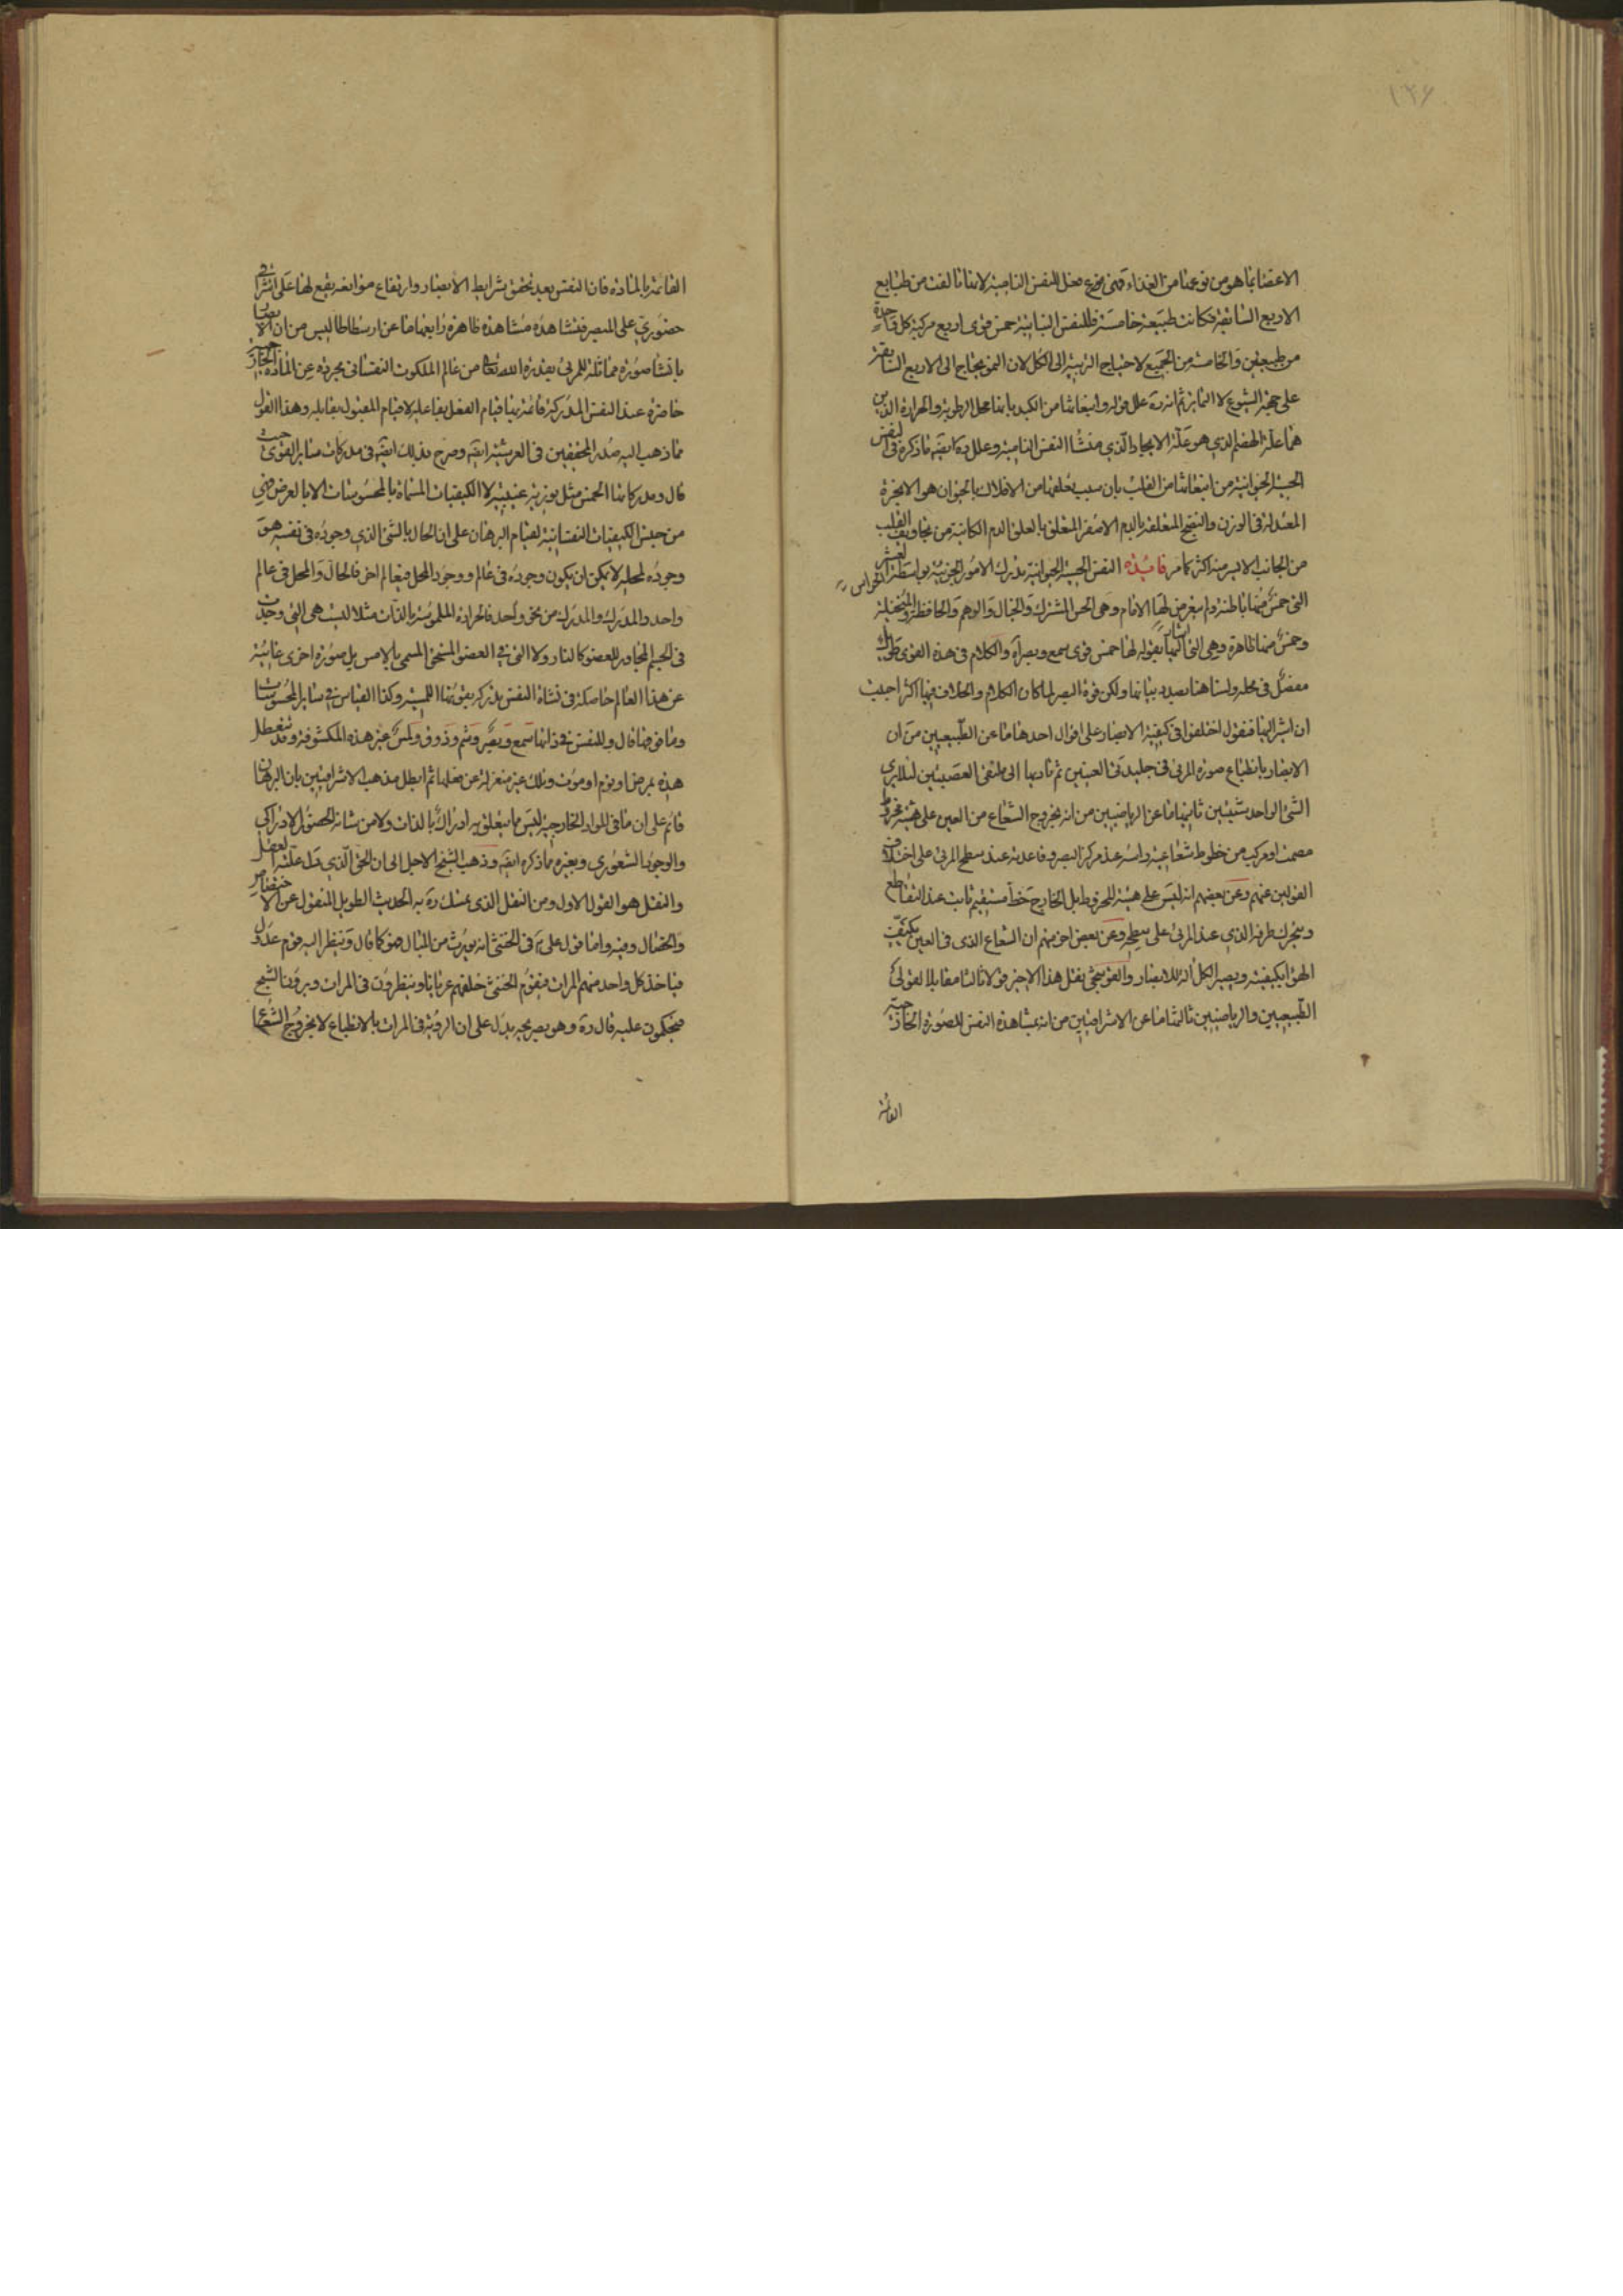 ١٣٦
الاعضا بما هو من نوعها من الغذاء فهى فعل للنفس النامية لانها تالفت من طبايع
الاربع السابقة فكانت طبيعة خامسة فللنفس النباتية خمس قوى اربع مركبة كل واحدة
من طبيعتين والخامسة من الجميع لاحتياج التربية الى الكل لان النمو يحتاج الى الاربع السابقة
على جهة الشيوع لا التمايز ثم انه ره علل قوله وانبعاثها من الكبد بانها محل الرطوبة والحرارة الذين
هما علة الهضم الذي هو علة الايجاد الذي منشا النفس النامية وعلل ره ايضا ما ذكره في النفس
الحسية الحيوانية من انبعاثها من القلب بان سبب تعلقها من الافلاك بالحيوان هو الابخرة
المعتدلة في الوزن والنضج المتعلقة بالدم الاصفر المتعلق بالعلق الدم الكائنة من تجاويف القلب
من الجانب الايسر منه اكثر كما مر فائدة النفس الحسية الحيوانية تدرك الامور الجزئية بواسطة الحواس العشر
التى خمس منها باطنة ولم يتعرض لها الامام وهى الحس المشترك والخيال والوهم والحافظة والمتخيلة
وخمس منها ظاهرة وهى التى اشار اليها بقوله لها خمس قوى سمع وبصر اه والكلام فى هذه القوى طويل
مفصل فى محله ولسنا هنا بصدد بيانها ولكن قوة البصر لما كان الكلام والخلاف فيها اكثر احببت
ان اشير اليها فنقول اختلفوا فى كيفية الابصار على اقوال احدها ما عن الطبيعيين من ان
الابصار بانطباع صورة المرئى فى جليدتى العينين ثم تاديها الى ملتقى العصبتين لئلا يرى
الشئ الواحد شيئين ثانيها ما عن الرياضيين من انه بخروج الشعاع من العين على هيئة مخروط
مصمت او مركب من خطوط شعاعية راسه عند مركز البصر وقاعدته عند سطح المرئى على اختلاف
القولين عنهم وعن بعضهم انه ليس على هيئة المخروط بل الخارج خط مستقيم ثابت عند التقاطع
ويتحرك طرفه الذي عند المرئى على سطحه وعن بعض اخر منهم ان الشعاع الذى فى العين يكيف
الهواء بكيفيته ويصير الكل الة للابصار والقوشجى نقل هذا الاخير قولا ثالثا مقابلا لقولى
الطبيعيين والرياضيين ثالثها ما عن الاشراقيين من انه بمشاهدة النفس للصورة الخارجية
القائمة
القائمة بالمادة فان النفس بعد تحقق شرايط الابصار وارتفاع موانعه يقع لها علم اشراقى
حضوري على المبصر فتشاهده مشاهدة ظاهرة رابعها ما عن ارسطاطاليس من ان الابصار
بانشا صورة مماثلة للمرئى بقدرة الله تعالى من عالم الملكوت النفسانى مجردة عن المادة الخارجية
حاضرة عند النفس المدركة قائمة بها قيام الفعل بفاعله لا قيام المقبول بقابله وهذا القول
مما ذهب اليه صدر المحققين فى العرشية ايضا وصرح بذلك ايضا فى مدركات سائر القوى حيث
قال ومدركاتها الخمس مثل نورية غيبية لا الكيفيات المسماة بالمحسوسات الا بالعرض فهي
من جنس الكيفيات النفسانية لقيام البرهان على ان الحال بالشئ الذي وجوده فى نفسه هو
وجوده لمحله لا يمكن ان يكون وجوده فى عالم ووجود المحل فى عالم اخر فالحال والمحل فى عالم
واحد والمدرك والمدرك من نحو واحد فالحرارة الملموسة بالذات مثلا ليست هى التى وجدت
فى الجسم المجاور للعضو كالنار ولا التى فى العضو المتسخن المسمى بلامس بل صورة اخرى غائبة
عن هذا العالم حاصلة فى نشاة النفس تدركه بقوتها اللمسية وكذا القياس فى سائر المحسوسات
وما قوتها قال وللنفس فى ذاتها سمع وبصر وشم وذوق ولمس غير هذه المكشوفة وقد تتعطل
هذه بمرض او نوم او موت وتلك غير منعزلة عن فعلها ثم ابطل مذهب الاشراقيين بان البرهان
قائم على ان ما فى المواد الخارجية ليس مما يتعلق به ادراك بالذات ولا من شانه الحصول الادراكي
والوجود الشعوري وبغيره مما ذكره ايضا وذهب الشيخ الاجل الى ان الحق الذي تدل عليه العقل
والنقل هو القول الاول ومن النقل الذى تمسك ره به الحديث الطويل المنقول عن الاختصاص
والخصال وفيه واما قول على ع فى الخنثى انه يورث من المبال فهو كما قال وينظر اليه قوم عدول
فياخذ كل واحد منهم المرات فيقوم الخنثى خلفهم عريانا وينظرون فى المرات ويرون الشبح
فيحكمون عليه قال ره وهو بصريحه يدل على ان الرؤية فى المرات بالانطباع لا بخروج الشعاع